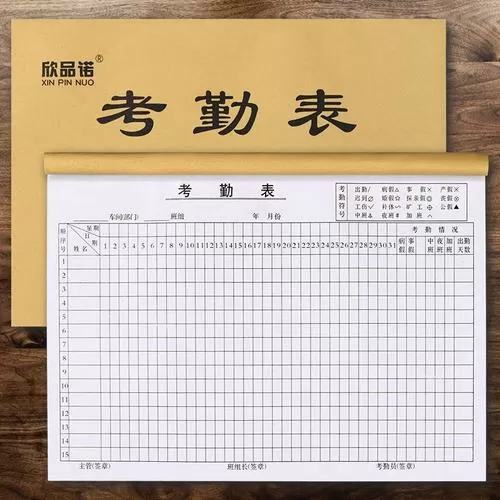 欣品诺®
XIN PIN NUO
考勤表
考勤表
考勤符号
出勤/ 病假△ 事假× 产假
迟到 婚假☆ 探亲假 丧假
工伤 补休 旷工 公假
中班 夜班# 加班
车间(部门): 班组 年 月份
顺序号 星期 日期 姓名
1 2 3 4 5 6 7 8 9 10 11 12 13 14 15 16 17 18 19 20 21 22 23 24 25 26 27 28 29 30 31
考勤情况
病假 事假 中班 夜班 加班 出勤天数
1
2
3
4
5
6
7
8
9
10
11
12
13
14
15
主管(签章) 班组长(签章) 考勤员(签章)